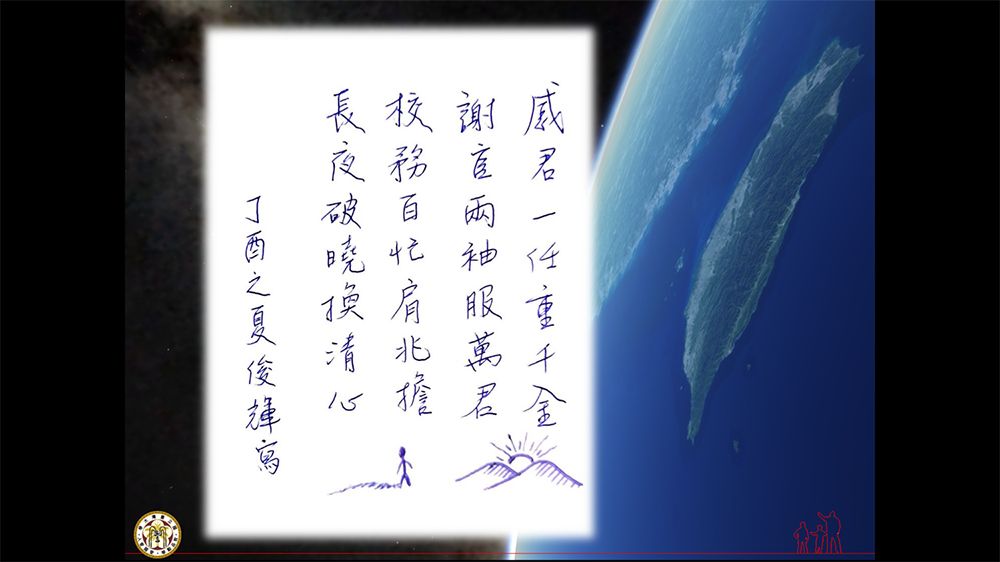 感君一任重千金
謝官兩袖服萬君
校務百忙肩兆擔
長夜破曉換清心
丁酉之夏俊輝寫